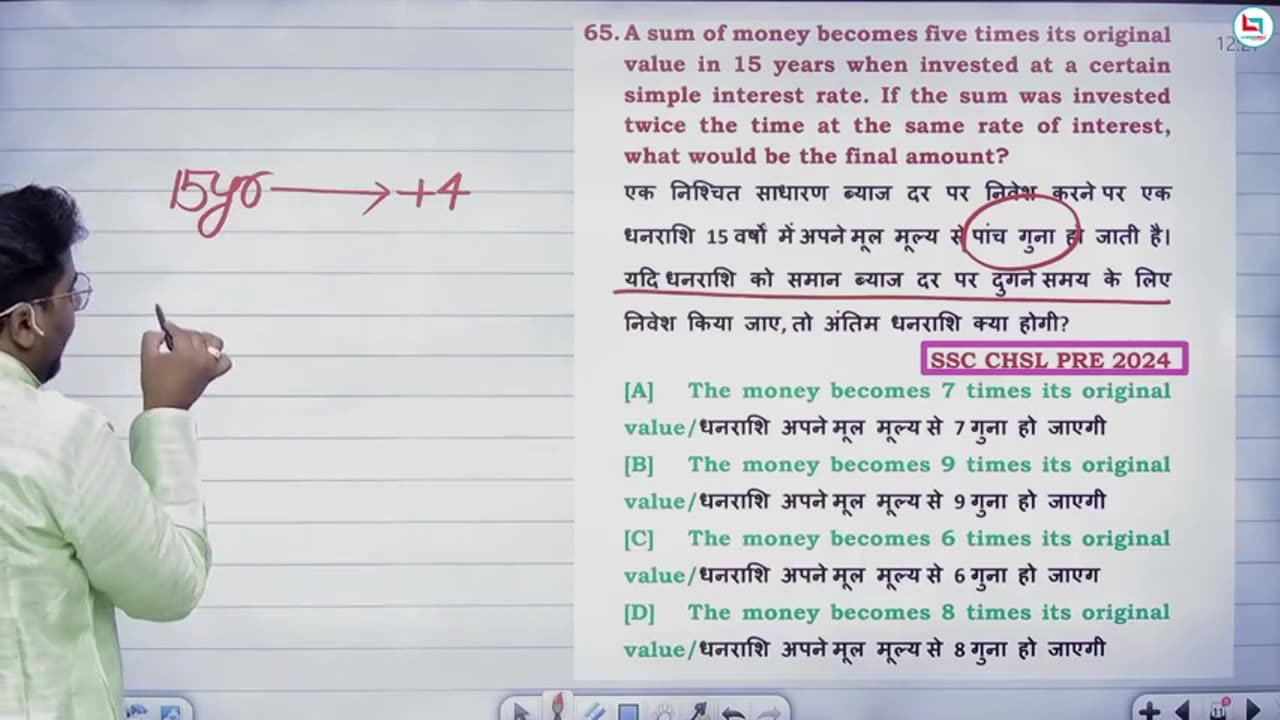 65. A sum of money becomes five times its original
value in 15 years when invested at a certain
simple interest rate. If the sum was invested
twice the time at the same rate of interest,
what would be the final amount?
एक निश्चित साधारण ब्याज दर पर निवेश करने पर एक
धनराशि 15 वर्षों में अपने मूल मूल्य से पांच गुना हो जाती है।
यदि धनराशि को समान ब्याज दर पर दुगने समय के लिए
निवेश किया जाए, तो अंतिम धनराशि क्या होगी?
SSC CHSL PRE 2024
[A] The money becomes 7 times its original
value/धनराशि अपने मूल मूल्य से 7 गुना हो जाएगी
[B] The money becomes 9 times its original
value/धनराशि अपने मूल मूल्य से 9 गुना हो जाएगी
[C] The money becomes 6 times its original
value/धनराशि अपने मूल मूल्य से 6 गुना हो जाएग
[D] The money becomes 8 times its original
value/धनराशि अपने मूल मूल्य से 8 गुना हो जाएगी
15yr → +4
11